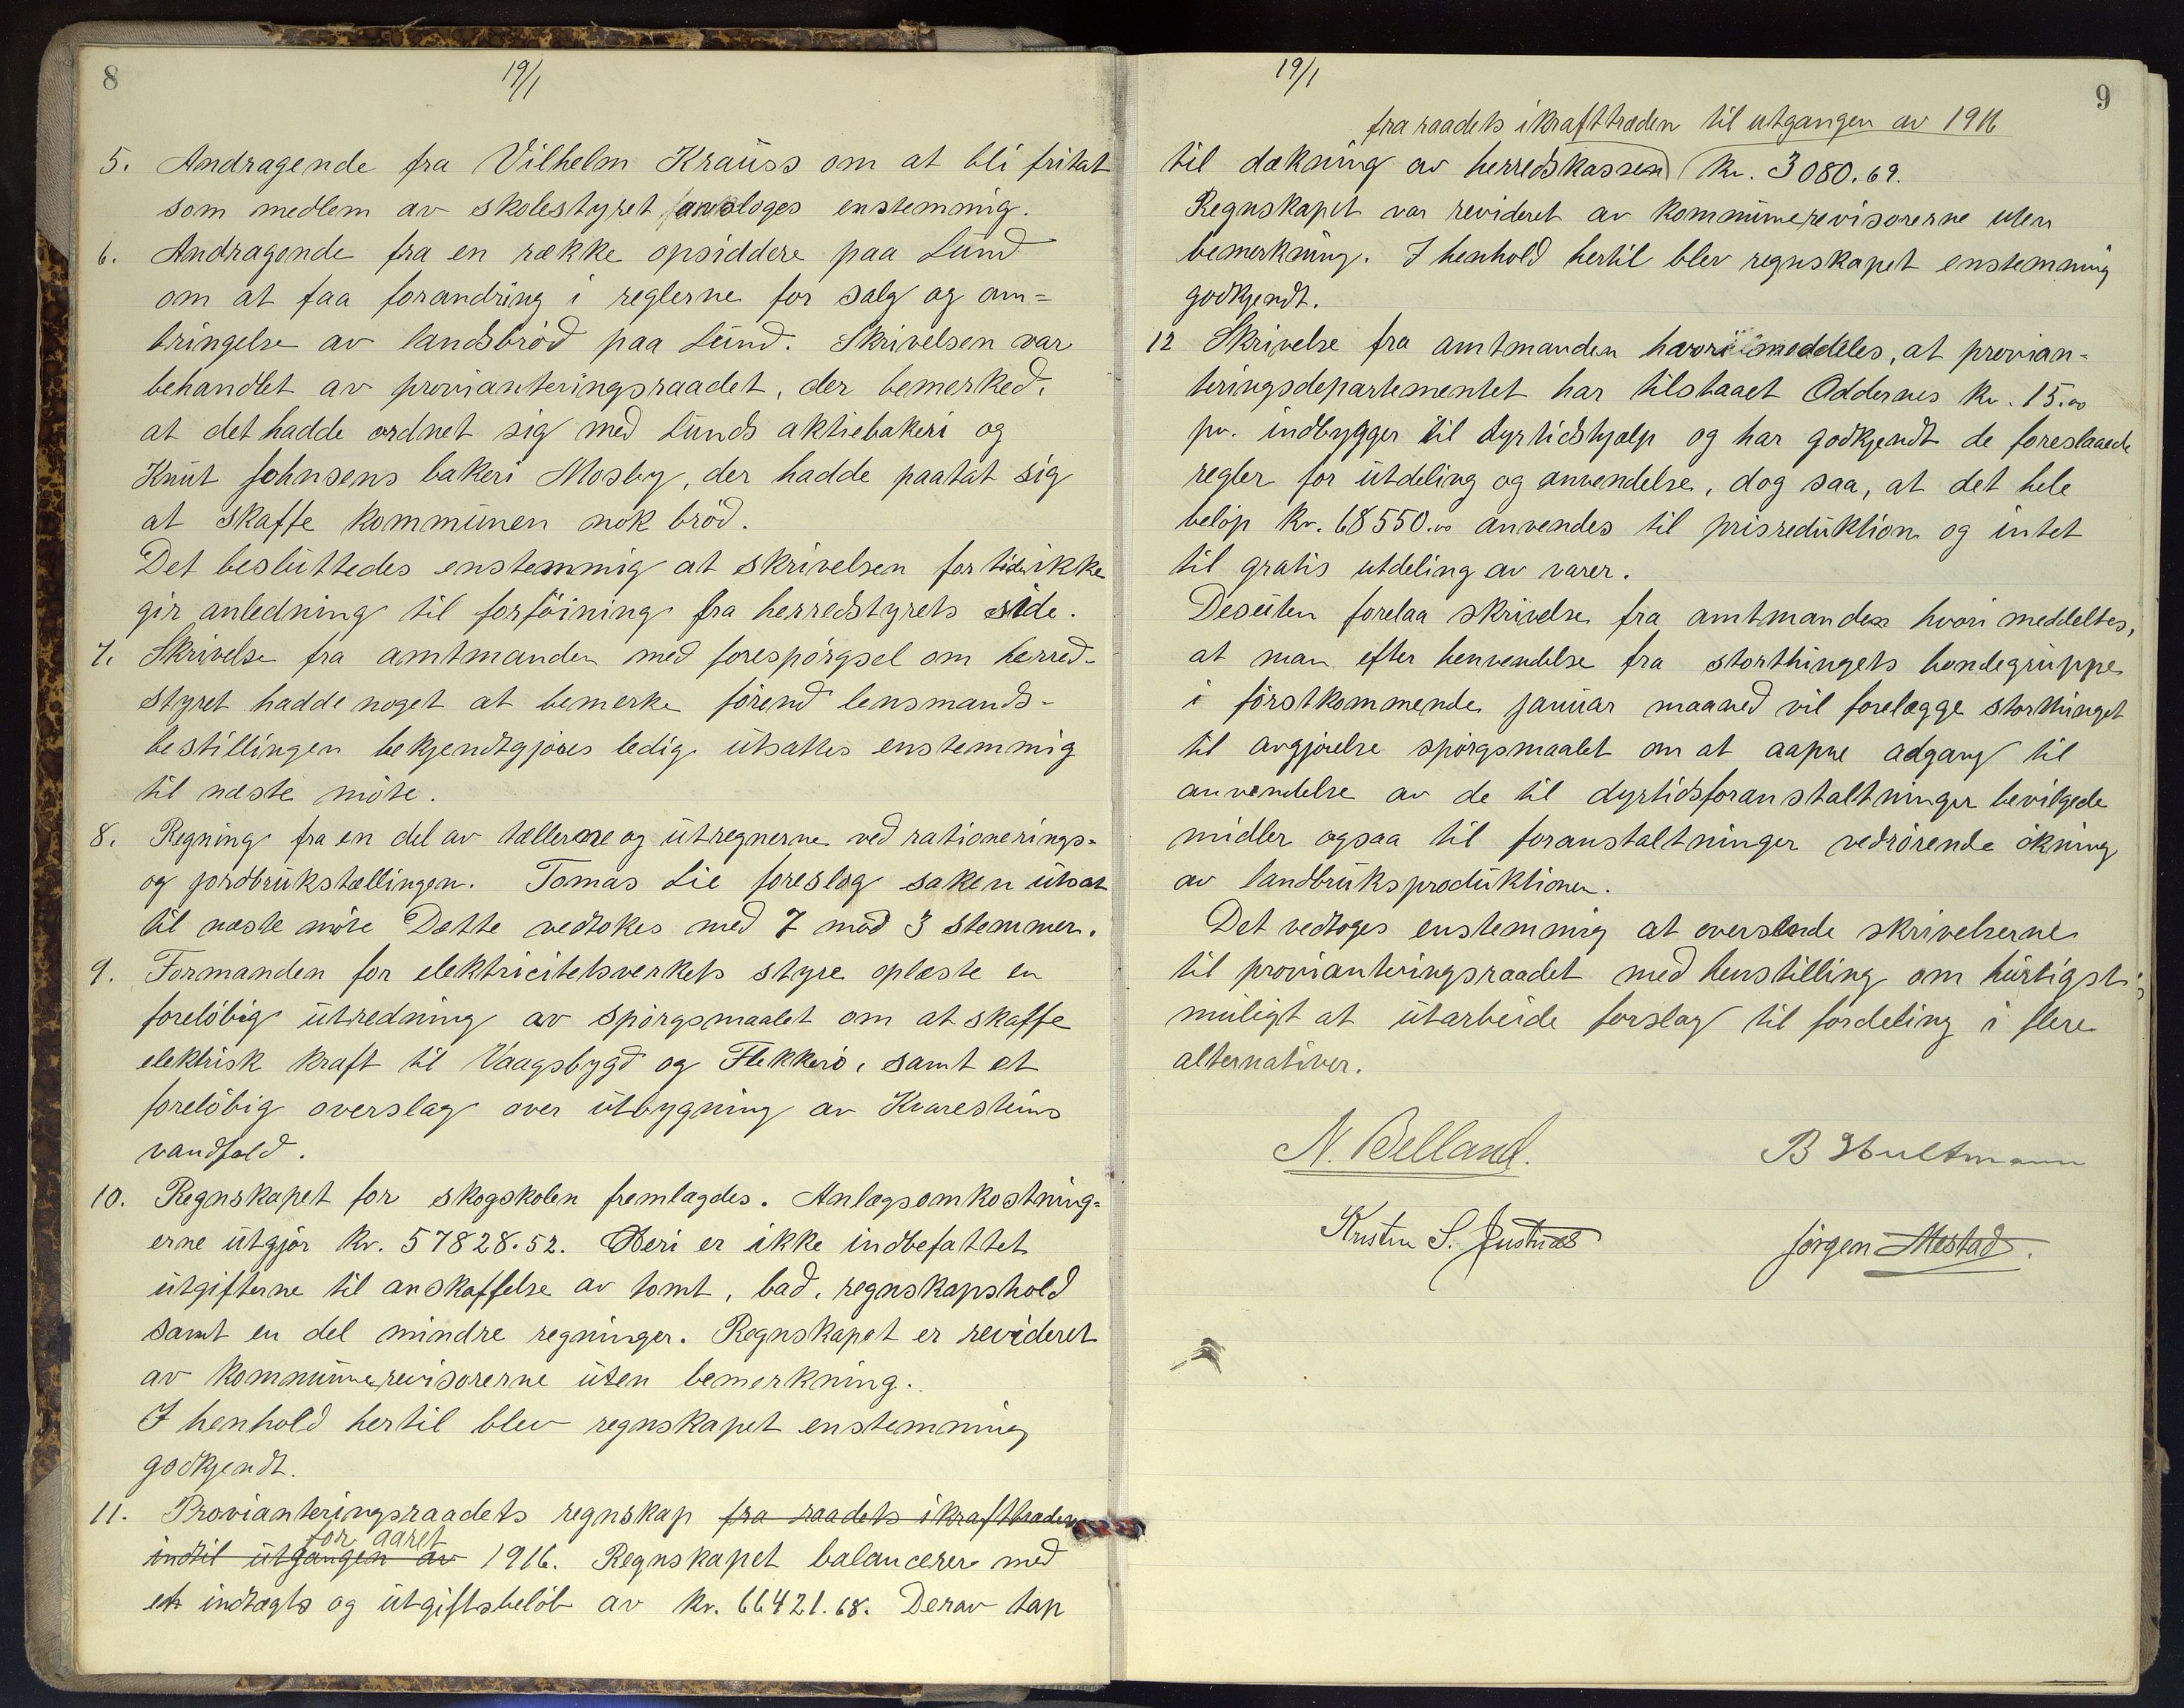 8
19/1
5. Andragende fra Vilhelm Krauss om at bli fritat
som medlem av skolestyret avsloges enstemmig.
6. Andragende fra en række opsiddere paa Lund
om at faa forandring i reglerne for salg og om=
bringelse av landsbröd paa Lund. Skrivelsen var
behandlet av provianteringsraadet, der bemerked,
at det hadde ordnet sig med Lunds aktiebakeri og
Knut Johnsens bakeri Mosby, der hadde paatat sig
at skaffe kommunen nok bröd.
Det besluttedes enstemmig at skrivelsen for tiden ikke
gir anledning til forföining fra herredstyrets side.
7. Skrivelse fra amtmanden med forespörgsel om herred-
styret hadde noget at bemerke förend lensmands-
bestillingen bekjendtgjöres ledig utsattes enstemmig
til næste möte.
8. Regning fra en del av tællerne og utregnerne ved rationerings-
og jordbrukstællingen. Tomas Lie foreslog saken utsat
til næste möte Dette vedtokes med 7 mod 3 stemmer.
9. Formanden for elektricitetsverkets styre oplæste en
forelöbig utredning av spörgsmaalet om at skaffe
elektrisk kraft til Vaagsbygd og Flekkerö, samt et
forelöbig overslag over utbygning av Kvaresteins
vandfald.
10. Regnskapet for skogskolen fremlagdes. Anlægsomkostning=
erne utgjör kr. 57828.52. Heri er ikke indbefattet
utgifterne til anskaffelse av tomt, bad, regnskapshold
samt en del mindre regninger. Regnskapet er revideret
av kommunerevisorerne uten bemerkning.
I henhold hertil blev regnskapet enstemmig
godkjendt.
11. Provianteringsraadets regnskap fra raadets ikrafttræden
for aaret
indtil utgangen av 1916. Regnskapet balancerer med
et indtægts og utgiftsbelöb av kr. 66421.68. Derav tap
19/1
9
fra raadets ikrafttræden til utgangen av 1916
til dækning av herredskassen kr. 3080.69.
Regnskapet var revideret av kommunerevisorerne uten
bemerkning. I henhold hertil blev regnskapet enstemmig
godkjendt.
12 Skrivelse fra amtmanden hvori meddeles, at provian-
teringsdepartementet har tilstaaet Oddernes kr. 15.00
pr. indbygger til dyrtidshjælp og har godkjendt de foreslaaede
regler for utdeling og anvendelse, dog saa, at det hele
belöp kr. 68550.00 anvendes til prisreduktion og intet
til gratis utdeling av varer.
Desuten forelaa skrivelse fra amtmanden hvori meddeltes,
at man efter henvendelse fra storthingets bondegruppe
i förstkommende januar maaned vil forelægge storthinget
til avgjörelse spörgsmaalet om at aapne adgang til
anvendelse av de til dyrtidsforanstaltninger bevilgede
midler ogsaa til foranstaltninger vedrörende ökning
av landbruksproduktionen.
Det vedtoges enstemmig at oversende skrivelserne
til provianteringsraadet med henstilling om hurtigst
muligt at utarbeide forslag til fordeling i flere
alternativer.
N. Belland.
B Hultmann
Kristen S. Justnæs
Jörgen Mestad.